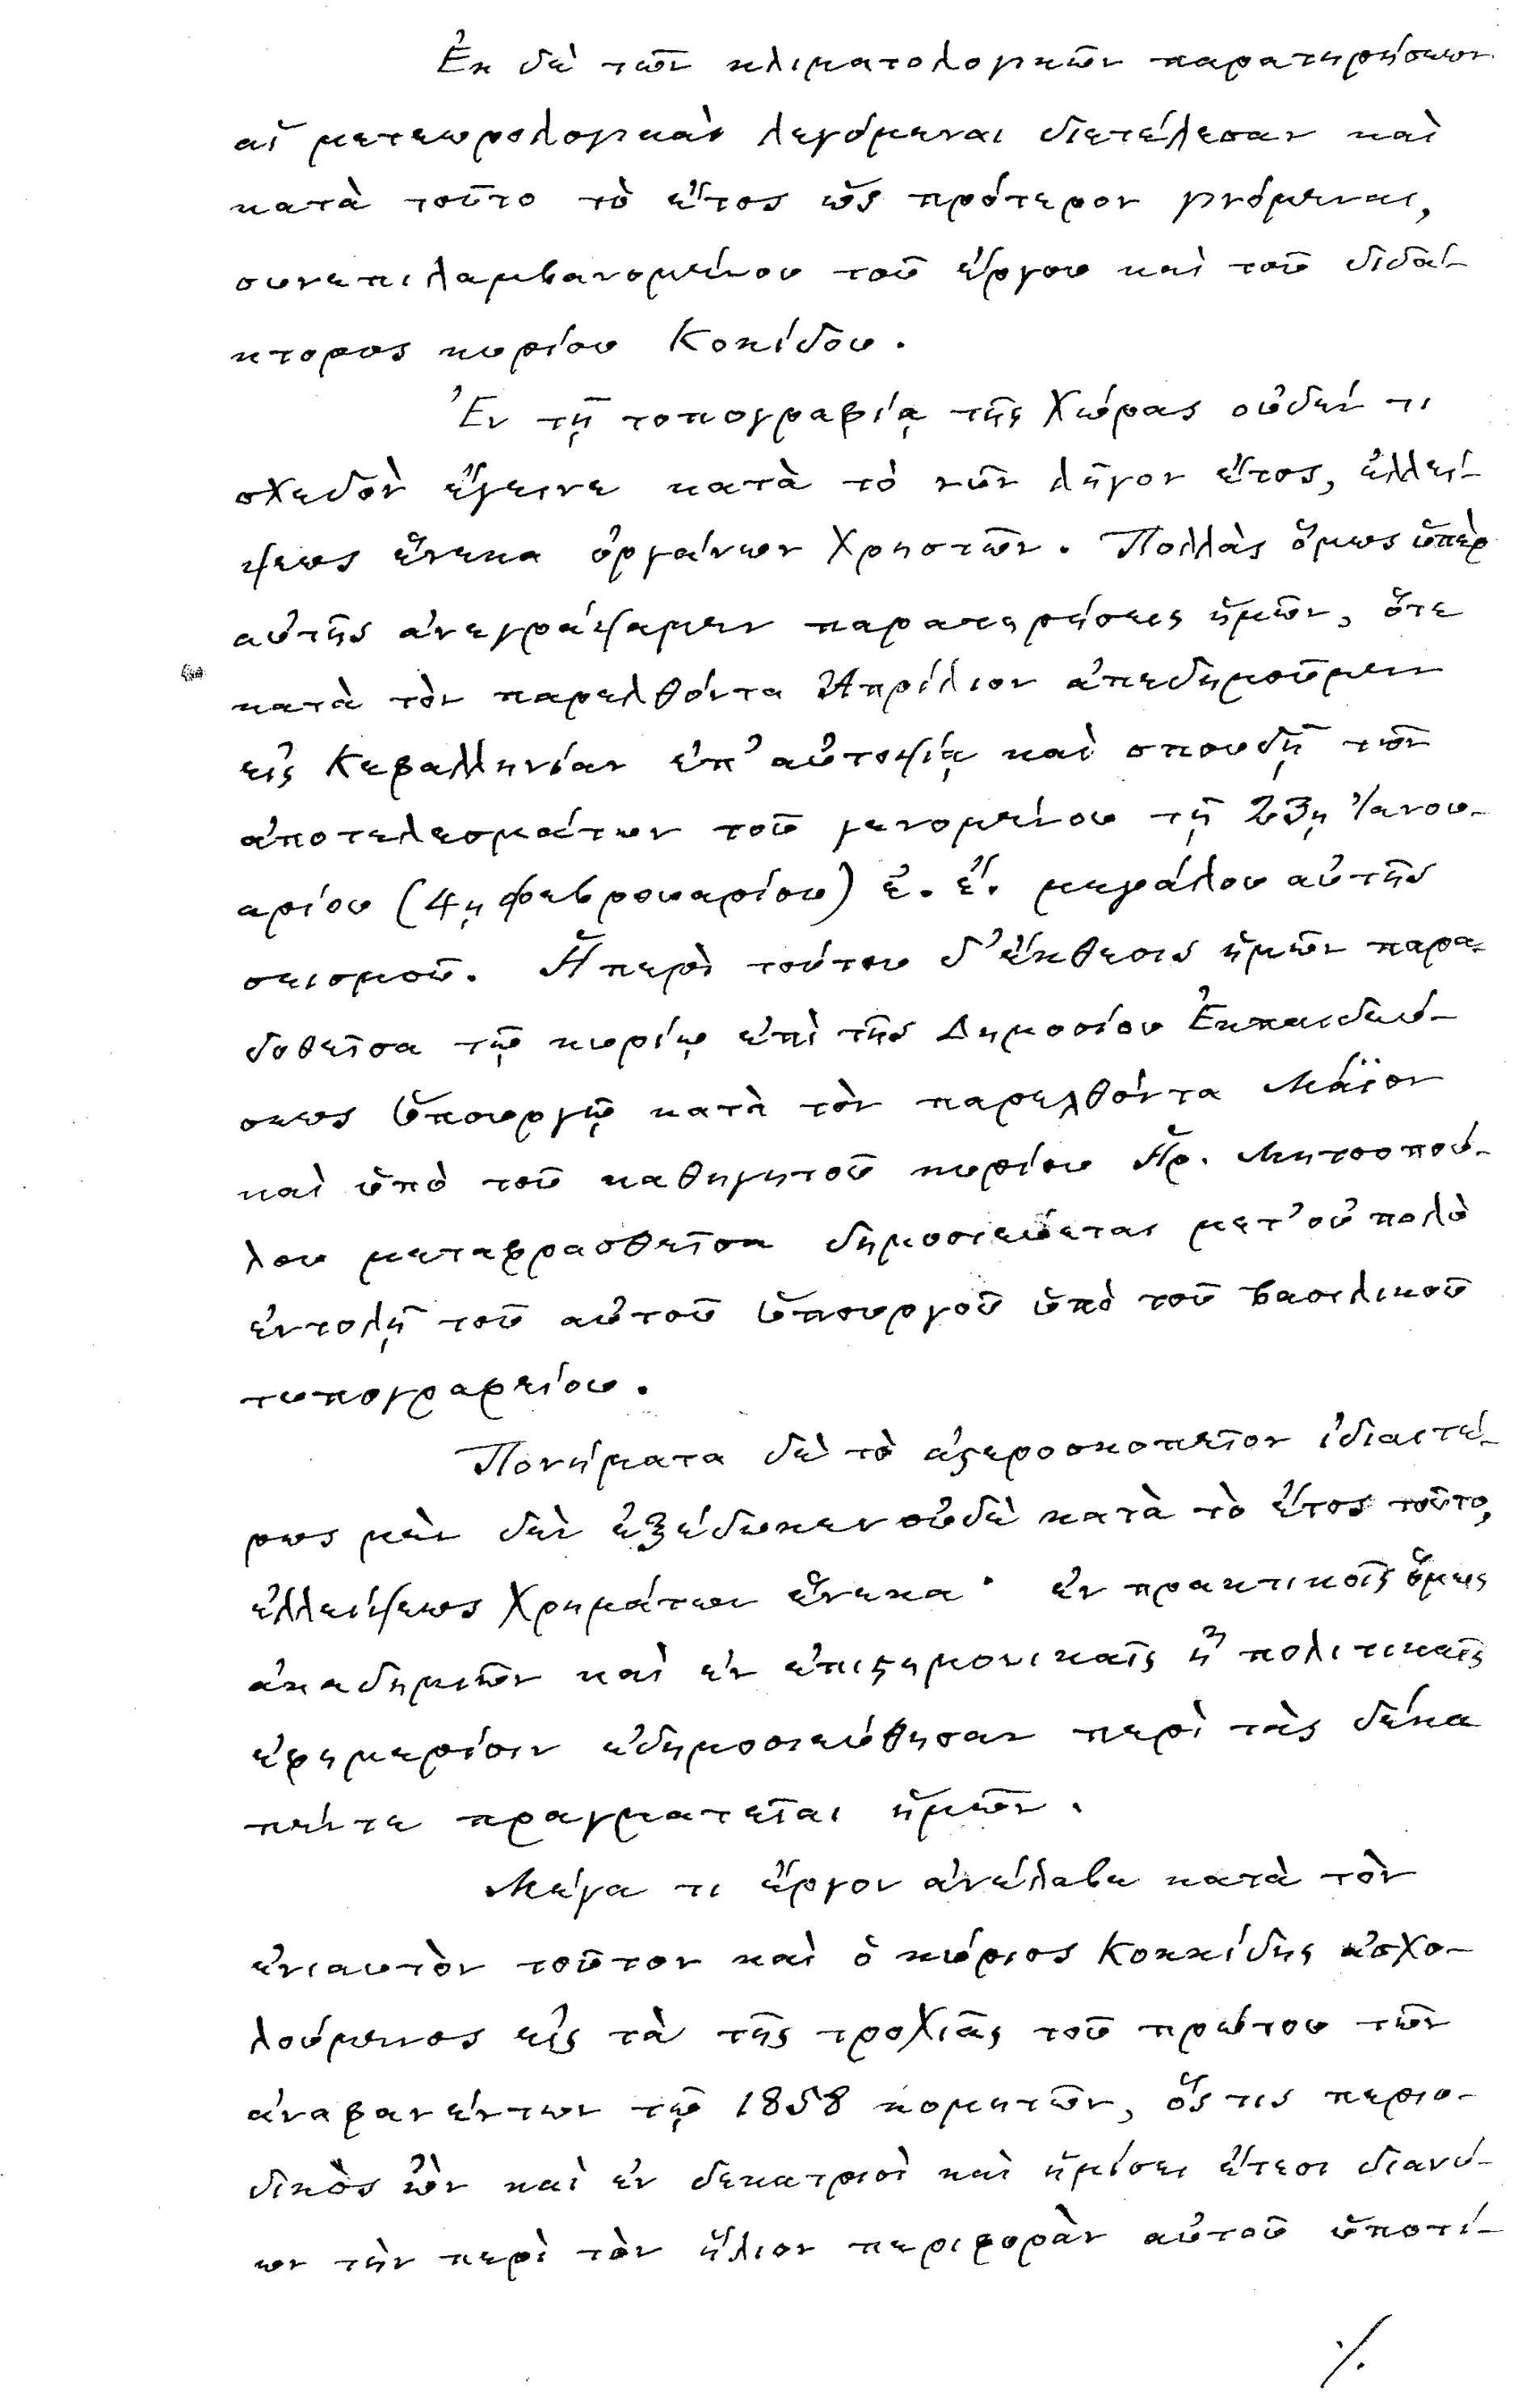 Ἐκ δὲ τῶν κλιματολογικῶν παρατηρήσεων
αἱ μετεωρολογικαὶ λεγόμεναι διετέλεσαν καὶ
κατὰ τοῦτο τὸ ἔτος ὡς πρότερον γινόμεναι,
συνεπιλαμβανομένου τοῦ ἔργου καὶ τοῦ διδά-
κτορος κυρίου Κοκίδου.
Ἐν τῇ τοπογραφίᾳ τῆς Χώρας οὐδέν τι
σχεδὸν ἔγεινε κατὰ τὸ νῦν λῆγον ἔτος, ἐλλεί-
ψεως ἕνεκα ὀργάνων χρηστῶν. Πολλὰς ὅμως ὑπὲρ
αὐτῆς ἀνεγράψαμεν παρατηρήσεις ἡμῶν, ὅτε
κατὰ τὸν παρελθόντα Ἀπρίλιον ἀπεδημοῦμεν
εἰς Κεφαλληνίαν ἐπ' αὐτοψίᾳ καὶ σπουδῇ τῶν
ἀποτελεσμάτων τοῦ γενομένου τῇ 23ῃ Ἰανου-
αρίου (4ῃ Φεβρουαρίου) ἐ. ἔ. μεγάλου αὐτῆς
σεισμοῦ. Ἡ περὶ τούτου δ' ἔκθεσις ἡμῶν παρα-
δοθεῖσα τῷ κυρίῳ ἐπὶ τῆς Δημοσίου Ἐκπαιδεύ-
σεως Ὑπουργῷ κατὰ τὸν παρελθόντα Μάϊον
καὶ ὑπὸ τοῦ καθηγητοῦ κυρίου Ἡρ. Μητσοπού-
λου μεταφρασθεῖσα δημοσιεύεται μετ' οὐ πολὺ
ἐντολῇ τοῦ αὐτοῦ Ὑπουργοῦ ὑπὸ τοῦ βασιλικοῦ
τυπογραφείου.
Πονήματα δὲ τὸ ἀϛεροσκοπεῖον ἰδιαιτέ-
ρως μὲν δὲν ἐξέδωκεν οὐδὲ κατὰ τὸ ἔτος τοῦτο,
ἐλλείψεως χρημάτων ἕνεκα· ἐν πρακτικοῖς ὅμως
ἀκαδημιῶν καὶ ἐν ἐπιϛημονικαῖς ἢ πολιτικαῖς
ἐφημερίσιν ἐδημοσιεύθησαν περὶ τὰς δέκα
πέντε πραγματεῖαι ἡμῶν.
Μέγα τι ἔργον ἀνέλαβε κατὰ τὸν
ἐνιαυτὸν τοῦτον καὶ ὁ κύριος Κοκκίδης ἀσχο-
λούμενος εἰς τὰ τῆς τροχιᾶς τοῦ πρώτου τῶν
ἀναφανέντων τῷ 1858 κομητῶν, ὅς τις περιο-
δικὸς ὢν καὶ ἐν δεκατρισὶ καὶ ἡμίσει ἔτεσι διανύ-
ων τὴν περὶ τὸν ἥλιον περιφορὰν αὐτοῦ ὑποτί-
./.